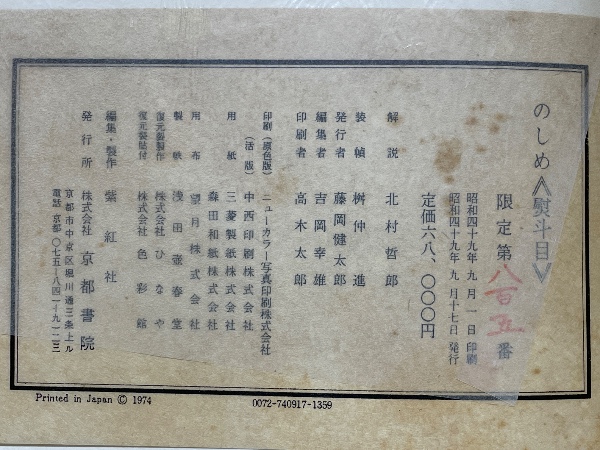 のしめ《熨斗目》
限定第八百五番
昭和四十九年九月一日 印刷
昭和四十九年九月十七日 発行
定価六八、〇〇〇円
解説 北村哲郎
装幀 桝仲進
発行者 藤岡健太郎
編集者 吉岡幸雄
印刷者 高木太郎
印刷(原色版) ニューカラー写真印刷株式会社
(活版) 中西印刷株式会社
用紙 三菱製紙株式会社
森田和紙株式会社
用布 望月株式会社
製帙 浅田壷春堂
復元裂製作 株式会社ひなや
復元裂貼付 株式会社色彩館
編集・製作 紫紅社
発行所 株式会社 京都書院
京都市中京区堀川通三条上ル
電話 京都〇七五-八四一-九一二三
Printed in Japan © 1974
0072-740917-1359